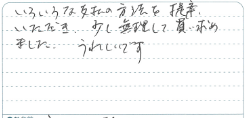 いろいろな支払の方法を提案、
いただき、少し無理して買い求め
ました。うれしいです